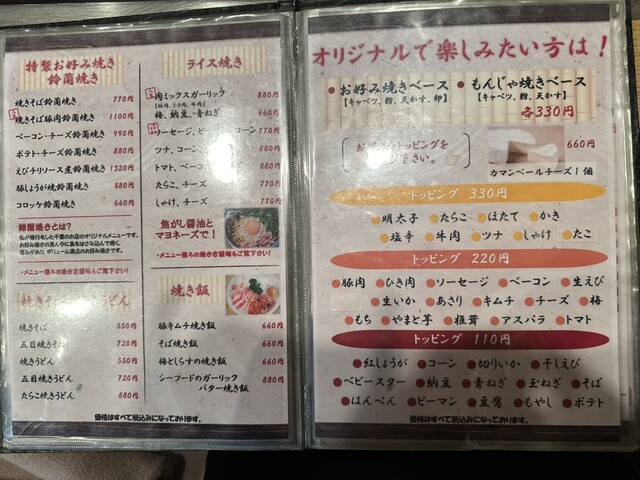 特製お好み焼き
鈴蘭焼き
焼きそば鈴蘭焼き 770円
焼きそば豚肉鈴蘭焼き 1100円
ベーコン・チーズ鈴蘭焼き 990円
ポテト・チーズ鈴蘭焼き 880円
えびチリソース煮鈴蘭焼き 1320円
豚しょうが焼鈴蘭焼き 880円
コロッケ鈴蘭焼き 660円
鈴蘭焼きとは?
・メニュー後ろの焼き方説明もご覧下さい!
焼きそば 550円
五目焼きそば 720円
焼きうどん 550円
五目焼きうどん 720円
たらこ焼きうどん 880円
価格はすべて税込みになっております。
ライス焼き
肉ミックスガーリック 880円
【豚肉、ひき肉、牛肉】
梅、納豆、青ねぎ 660円
ソーセージ、ピーマン、コーン 770円
ツナ、コーン、 880円
トマト、ベーコン、 880円
たらこ、チーズ 770円
しゃけ、チーズ 770円
焦がし醤油と
マヨネーズで!
・メニュー後ろの焼き方説明もご覧下さい!
焼き飯
豚キムチ焼き飯 660円
そば焼き飯 660円
梅としらすの焼き飯 660円
シーフードのガーリック
バター焼き飯 880円
オリジナルで楽しみたい方は!
●お好み焼きベース
【キャベツ、粉、天かす、卵】
●もんじゃ焼きベース
【キャベツ、粉、天かす】
各330円
660円
カマンベールチーズ1個
トッピング 330円
●明太子 ●たらこ ●ほたて ●かき
●塩辛 ●牛肉 ●ツナ ●しゃけ ●たこ
トッピング 220円
●豚肉 ●ひき肉 ●ソーセージ ●ベーコン ●生えび
●生いか ●あさり ●キムチ ●チーズ ●梅
●もち ●やまと芋 ●椎茸 ●アスパラ ●トマト
トッピング 110円
●紅しょうが ●コーン ●切りいか ●干しえび
●ベビースター ●納豆 ●青ねぎ ●玉ねぎ ●そば
●はんぺん ●ピーマン ●豆腐 ●もやし ●ポテト
価格はすべて税込みになっております。